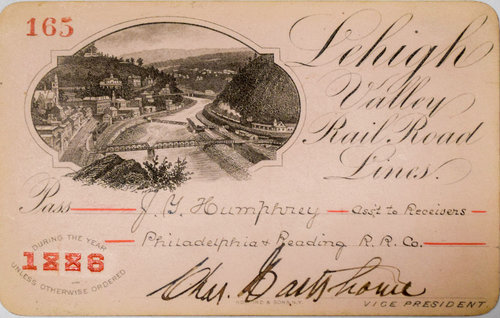 165
Lehigh
Valley
Rail Road
Lines.
Pass J. Y. Humphrey Ass't to Receivers
Philadelphia & Reading R. R. Co.
DURING THE YEAR
1886
UNLESS OTHERWISE ORDERED
Chas. Hartshorne
VICE PRESIDENT
& SONS N.Y.